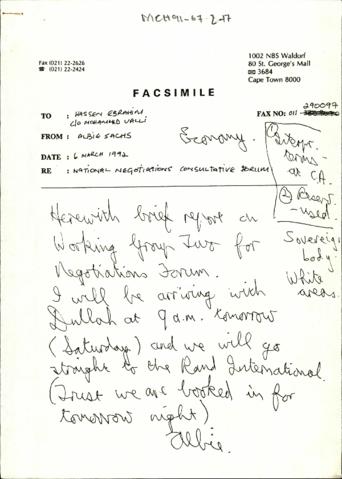 MCH91-67-2-17
Fax (021) 22-2626
☎ (021) 22-2424
1002 NBS Waldorf
80 St. George's Mall
3684
Cape Town 8000
FACSIMILE
TO : HASSEN EBRAHIM
C/O MOHAMMED VALLI
290097
FAX NO: 011
FROM : ALBIE SACHS
DATE : 6 MARCH 1992
RE : NATIONAL NEGOTIATIONS CONSULTATIVE FORUM
Economy.
① Interpr.
terms -
at CA.
② Reserv
- used.
Sovereign
body.
White
areas.
Herewith brief report on
Working Group Two for
Negotiations Forum.
I will be arriving with
Dullah at 9 a.m. tomorrow
(Saturday) and we will go
straight to the Rand International.
(Trust we are booked in for
tomorrow night)
Albie.